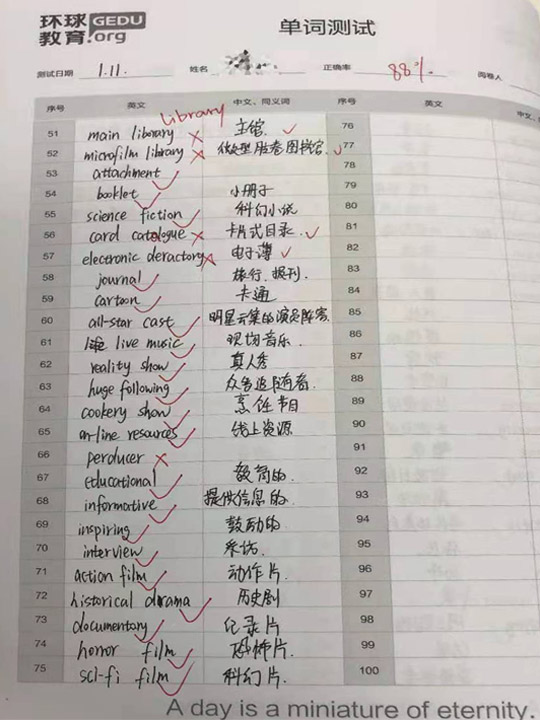 环球 GEDU
教育.org
单词测试
测试日期 1.11. 姓名 正确率 88% 阅卷人
序号 英文 中文、同义词 序号 英文 中文、
library
51 main library 主馆 76
52 microfilm library 微型胶卷图书馆 77
53 attachment 78
54 booklet 小册子 79
55 science fiction 科幻小说 80
56 card catalogue 卡片式目录 81
57 electronic deractory 电子薄 82
58 journal 旅行、报刊 83
59 cartoon 卡通 84
60 all-star cast 明星云集的演员阵容 85
61 live music 现场音乐 86
62 reality show 真人秀 87
63 huge following 众多追随者 88
64 cookery show 烹饪节目 89
65 on-line resources 线上资源 90
66 perducer 91
67 educational 教育的 92
68 informative 提供信息的 93
69 inspiring 鼓动的 94
70 interview 采访 95
71 action film 动作片 96
72 historical drama 历史剧 97
73 documentary 纪录片 98
74 horror film 恐怖片 99
75 sci-fi film 科幻片 100
A day is a miniature of eternity.